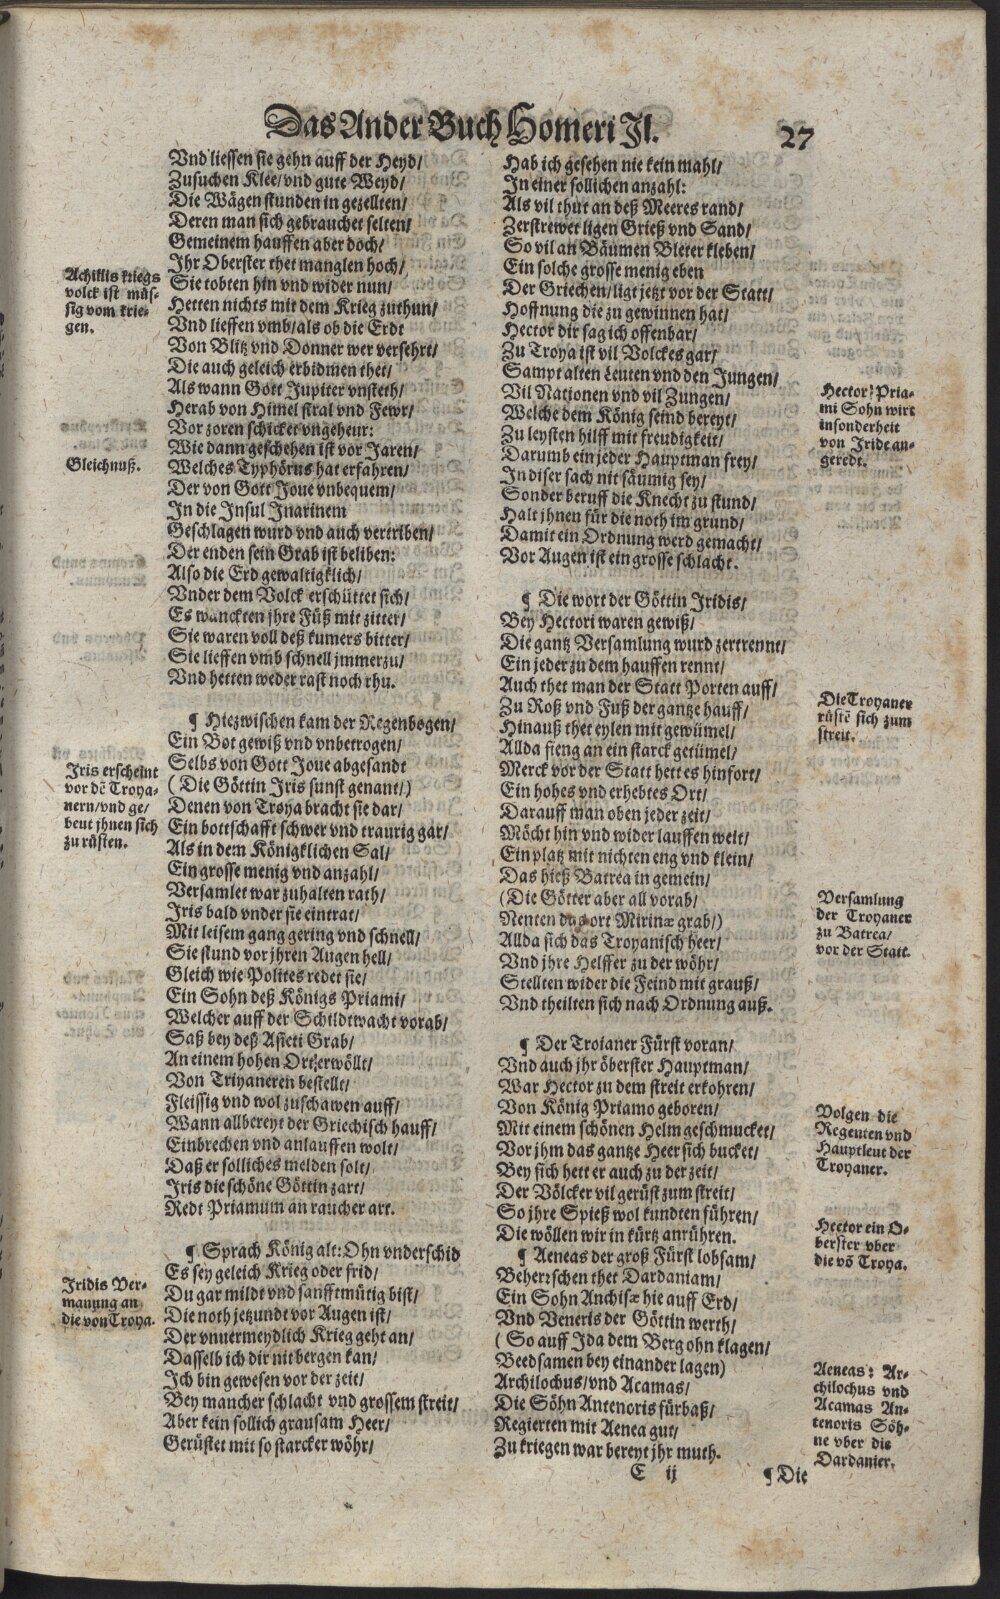 Das Ander Buch Homeri Il.
27
Vnd liessen sie gehn auff der Heyd/
Zusuchen Klee/vnd gute Weyd/
Die Wägen stunden in gezellten/
Deren man sich gebrauchet selten/
Gemeinem hauffen aber doch/
Ihr Oberster thet manglen hoch/
Sie tobten hin vnd wider nun/
Hetten nichts mit dem Krieg zuthun/
Vnd lieffen vmb/als ob die Erdt
Von Blitz vnd Donner wer versehrt/
Die auch geleich erbidmen thet/
Als wann Gott Jupiter vnsteth/
Herab von Himel stral vnd Fewr/
Vor zoren schicket vngeheur:
Wie dann geschehen ist vor Jaren/
Welches Typhörus hat erfahren/
Der von Gott Joue vnbequem/
In die Insul Inarinem
Geschlagen wurd vnd auch vertriben/
Der enden sein Grab ist beliben:
Also die Erd gewaltigklich/
Vnder dem Volck erschüttet sich/
Es wanckten jhre Füß mit zitter/
Sie waren voll deß kumers bitter/
Sie lieffen vmb schnell jmmerzu/
Vnd hetten weder rast noch rhu.
¶ Hiezwischen kam der Regenbogen/
Ein Bot gewiß vnd vnbetrogen/
Selbs von Gott Joue abgesandt
(Die Göttin Iris sunst genant/)
Denen von Troya bracht sie dar/
Ein bottschafft schwer vnd traurig gar/
Als in dem Königklichen Sal/
Ein grosse menig vnd anzahl/
Versamlet war zuhalten rath/
Iris bald vnder sie eintrat/
Mit leisem gang gering vnd schnell/
Sie stund vor jhren Augen hell/
Gleich wie Polites redet sie/
Ein Sohn deß Königs Priami/
Welcher auff der Schildtwacht vorab/
Saß bey deß Asieti Grab/
An einem hohen Ort erwöllt/
Von Triyaneren bestellt/
Fleissig vnd wol zuschawen auff/
Wann allbereyt der Griechisch hauff/
Einbrechen vnd anlauffen wolt/
Daß er solliches melden solt/
Iris die schöne Göttin zart/
Redt Priamum an raucher art.
¶ Sprach König alt: Ohn vnderschid
Es sey geleich Krieg oder frid/
Du gar mildt vnd sanfftmütig bist/
Die noth jetzundt vor Augen ist/
Der vnuermeydlich Krieg geht an/
Dasselb ich dir nit bergen kan/
Ich bin gewesen vor der zeit/
Bey mancher schlacht vnd grossem streit/
Aber kein sollich grausam Heer/
Gerüstet mit so starcker wöhr/
Achillis kriegs
volck ist müs-
sig vom krie-
gen.
Gleichnuß.
Iris erscheint
vor dē Troya-
nern/vnd ge/
beut jhnen sich
zu rüsten.
Iridis Ver-
manung an
die von Troya.
Hab ich gesehen nie kein mahl/
In einer sollichen anzahl:
Als vil thut an deß Meeres rand/
Zerstrewet ligen Grieß vnd Sand/
So vil an Bäumen Bleter kleben/
Ein solche grosse menig eben
Der Griechen/ligt jetzt vor der Statt/
Hoffnung die zu gewinnen hat/
Hector dir sag ich offenbar/
Zu Troya ist vil Volckes gar/
Sampt alten Leuten vnd den Jungen/
Vil Nationen vnd vil Zungen/
Welche dem König seind bereyt/
Zu leysten hilff mit freudigkeit/
Darumb ein jeder Hauptman frey/
In diser sach nit säumig sey/
Sonder beruff die Knecht zu stund/
Halt jhnen für die noth im grund/
Damit ein Ordnung werd gemacht/
Vor Augen ist ein grosse schlacht.
¶ Die wort der Göttin Iridis/
Bey Hectori waren gewiß/
Die gantz Versamlung wurd zertrennt/
Ein jeder zu dem hauffen rennt/
Auch thet man der Statt Porten auff/
Zu Roß vnd Fuß der gantze hauff/
Hinauß thet eylen mit gewümel/
Allda fieng an ein starck getümel/
Merck vor der Statt hett es hinfort/
Ein hohes vnd erhebtes Ort/
Darauff man oben jeder zeit/
Möcht hin vnd wider lauffen weit/
Ein platz mit nichten eng vnd klein/
Das hieß Batrea in gemein/
(Die Götter aber all vorab/
Nenten das ort Mirinæ grab/)
Allda sich das Troyanisch heer/
Vnd jhre Helffer zu der wöhr/
Stellten wider die Feind mit grauß/
Vnd theilten sich nach Ordnung auß.
¶ Der Troianer Fürst voran/
Vnd auch jhr öberster Hauptman/
War Hector zu dem streit erkohren/
Von König Priamo geboren/
Mit einem schönen Helm geschmucket/
Vor jhm das gantze Heer sich bucket/
Bey sich hett er auch zu der zeit/
Der Völcker vil gerüst zum streit/
So jhre Spieß wol kundten führen/
Die wöllen wir in kürtz anrühren.
¶ Aeneas der groß Fürst lobsam/
Beherrschen thet Dardaniam/
Ein Sohn Anchisæ hie auff Erd/
Vnd Veneris der Göttin werth/
(So auff Ida dem Berg ohn klagen/
Beedsamen bey einander lagen)
Archilochus/vnd Acamas/
Die Söhn Antenoris fürbaß/
Regierten mit Aenea gut/
Zu kriegen war bereyt jhr muth.
Hector Pria-
mi Sohn wirt
insonderheit
von Iride an-
geredt.
Die Troyaner
rüstē sich zum
streit.
Versamlung
der Troyaner
zu Batrea/
vor der Statt.
Volgen die
Regenten vnd
Hauptleut der
Troyaner.
Hector ein O-
berster vber
die vō Troya.
Aeneas: Ar-
chilochus vnd
Acamas An-
tenoris Söh-
ne vber die
Dardanier.
E ij
¶ Die